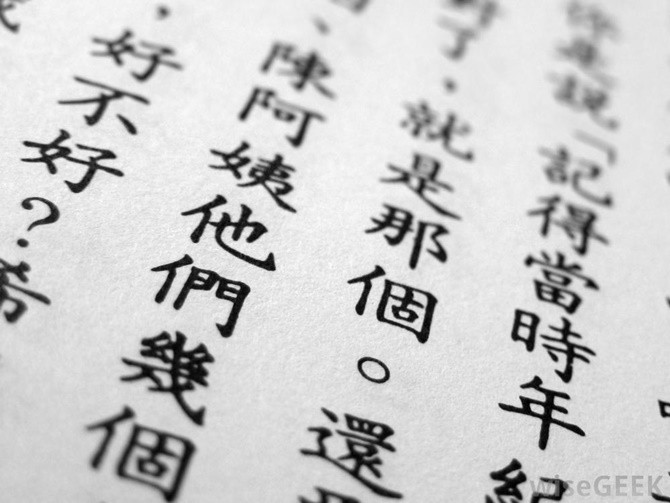 是說「記得當時年
了，就是那個。還
、陳阿姨他們幾個
，好不好？希
wiseGEEK